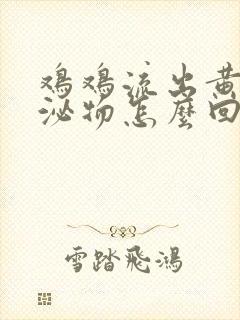 鸡鸡流出黄
泌物怎麼回
雪踏飛鴻